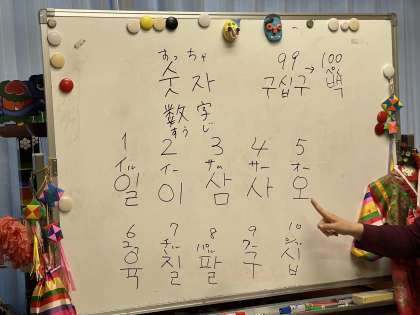 すっちゃ
숫자
数字
すうじ
99 → 100
구십구 백
1 2 3 4 5
イル イー サム サー オー
일 이 삼 사 오
6 7 8 9 10
육 칠 팔 구 십